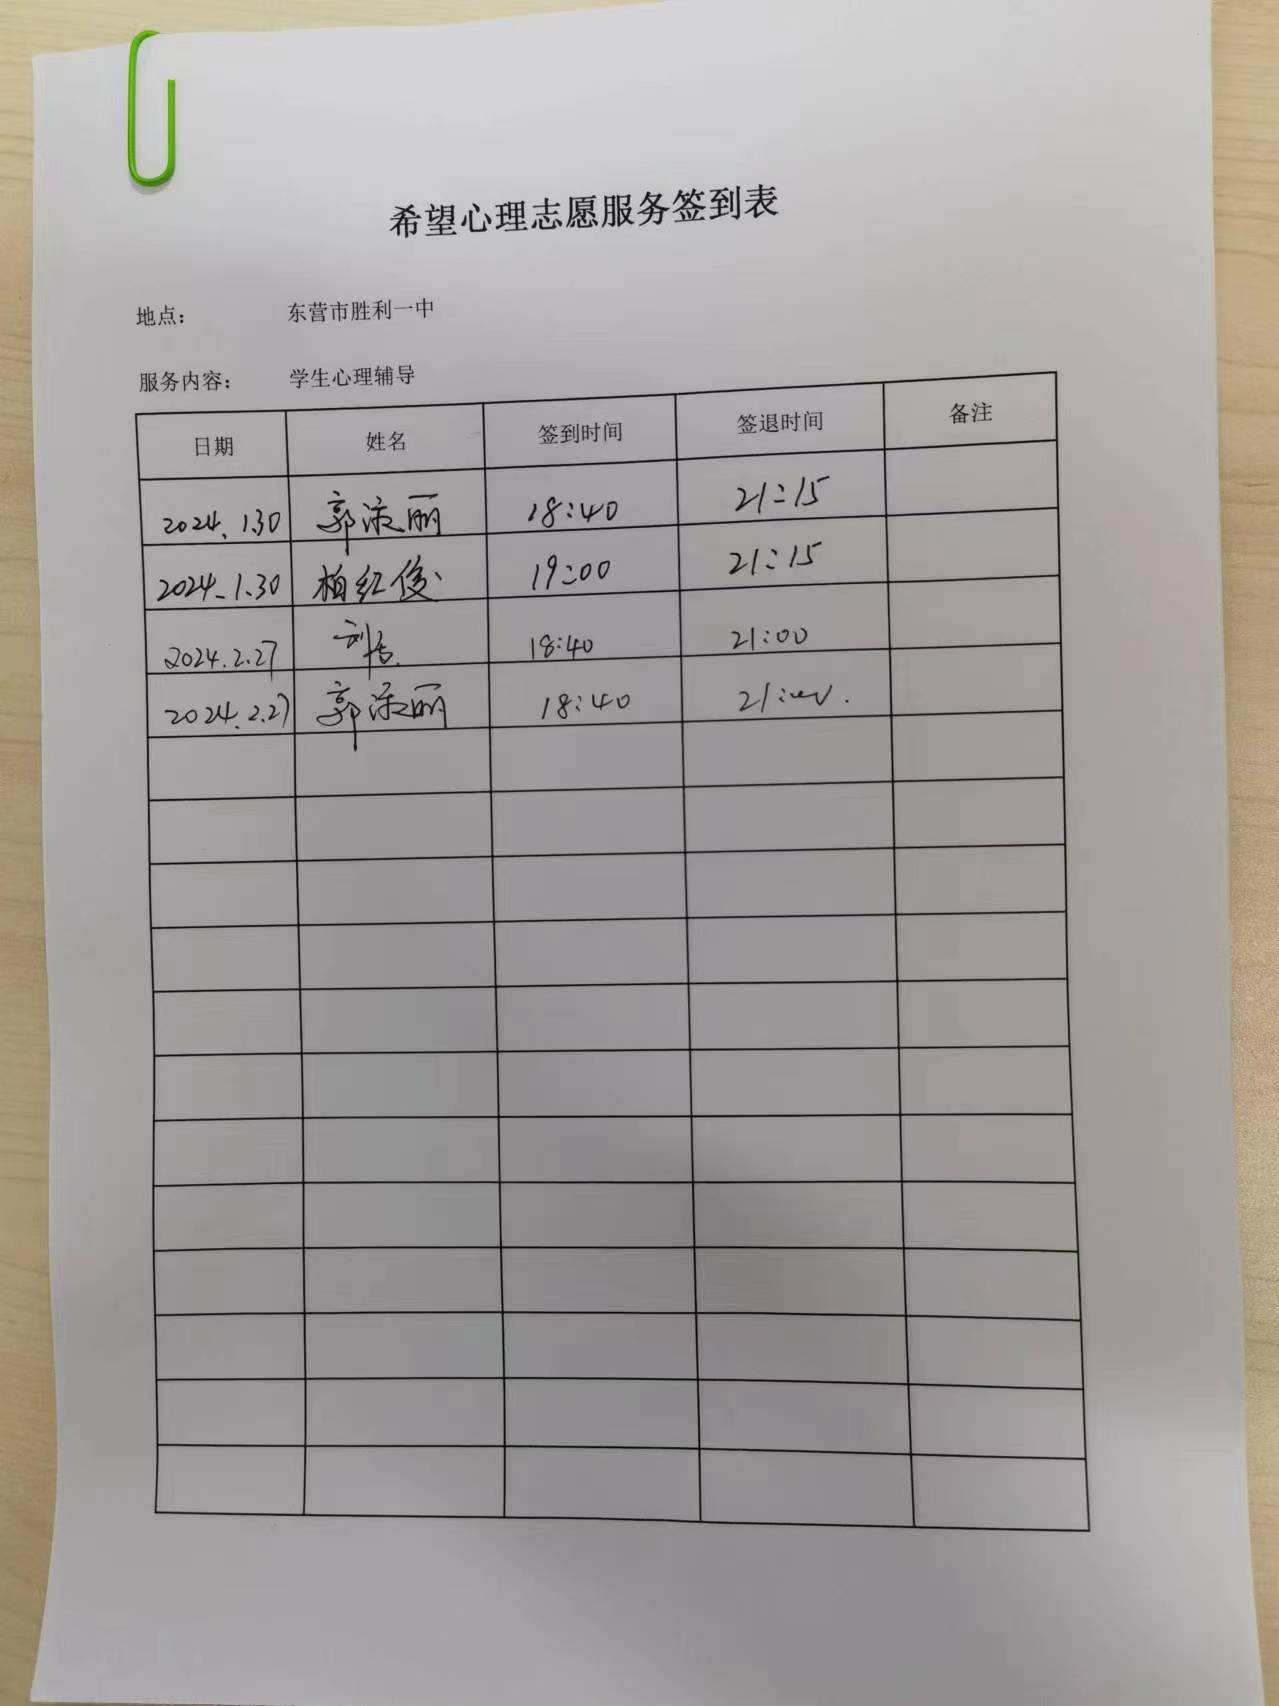 希望心理志愿服务签到表
地点： 东营市胜利一中
服务内容： 学生心理辅导
日期 姓名 签到时间 签退时间 备注
2024.1.30 郭淑丽 18:40 21:15
2024.1.30 柏红俊 19:00 21:15
2024.2.27 18:40 21:00
2024.2.27 郭淑丽 18:40 21:00.